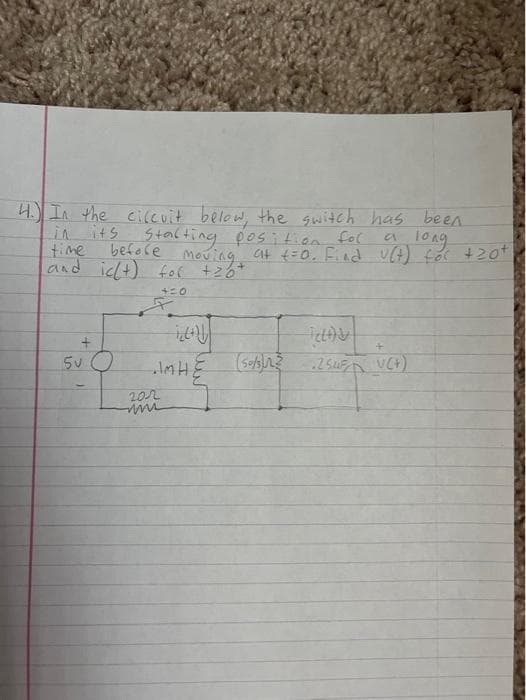 4.) In the circuit below, the switch has been
in its starting position for a long
time before moving at t=0. Find v(t) for t≥0⁺
and ic(t) for t≥0⁺
t=0
+
5V
-
20Ω
iL(t)↓
.1mH
(50/3)Ω
ic(t)↓
.25uF
+
V(t)
-